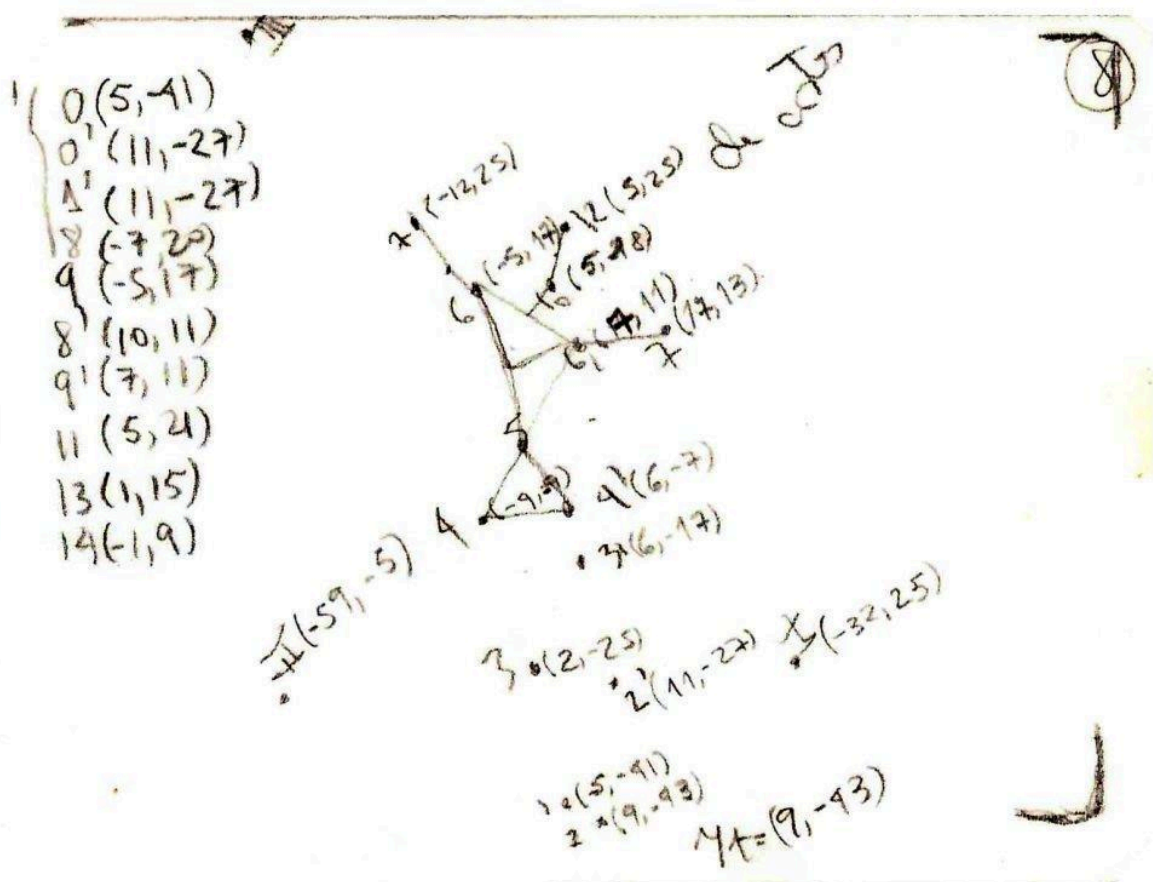 8
0(5,-41)
0'(11,-27)
1'(11,-27)
8(-7,20)
9(-5,17)
8'(10,11)
9'(7,11)
11(5,21)
13(1,15)
14(-1,9)
7(-12,25)
12(5,25)
6(-5,17)
10(5,18)
6'(7,11)
7(17,13)
5
4(-9,-9)
4'(6,-7)
3'(6,-17)
II(-59,-5)
3(2,-25)
2'(11,-27)
X(-32,25)
1(5,-41)
2(9,-43)
(9,-43)